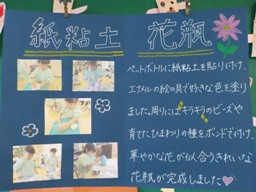 紙粘土 花瓶
ペットボトルに紙粘土を貼り付け、
エナメルの絵の具で好きな色を塗り
ました。周りにはキラキラのビーズや
育てたひまわりの種をボンドで付け、
華やかな花が似合うきれいな
花瓶が完成しました